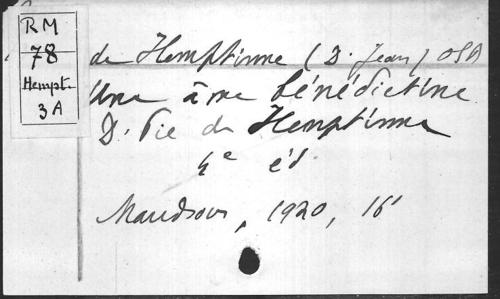 RM
78
Hempt.
3A
de Hemptinne (D. Jean) OSB
Une âme bénédictine
D. Pie de Hemptinne
4e éd.
Maredsous, 1920, 16°